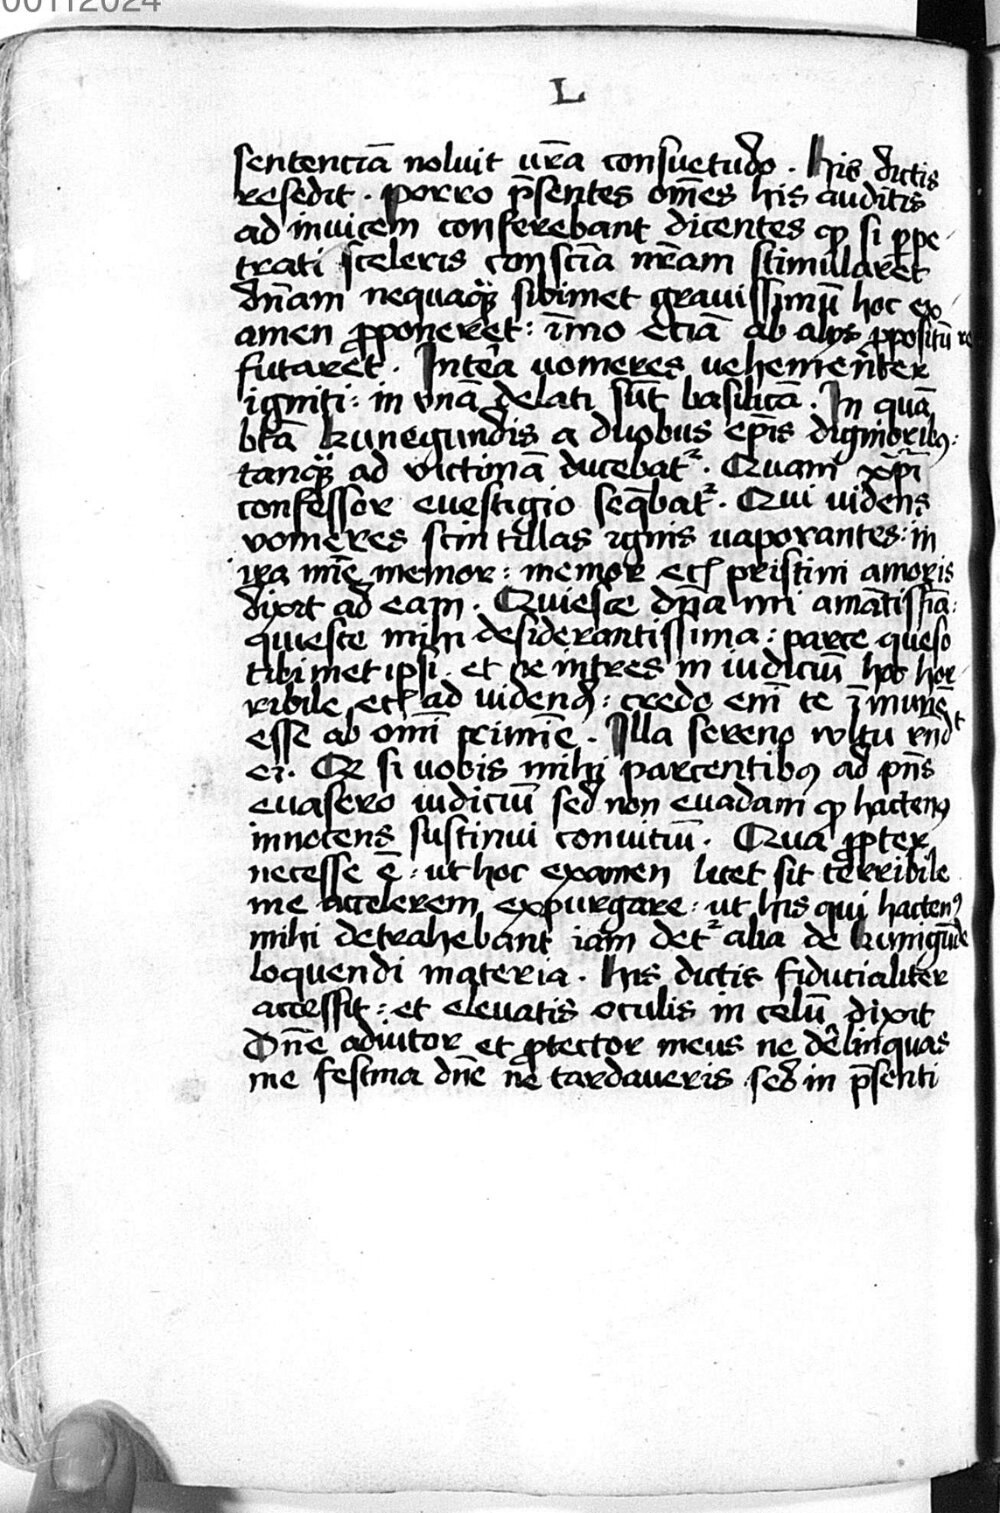 00112024
L
sentenciā noluit vr̄a consuetudo . his dictis
resedit . porro p̄sentes om̄es his auditis
ad invicem conferebant dicentes ꝙ si ꝑpe
trati sceleris conscīa mētem stimularet
dn̄am nequaq̄ꝫ sibimet gravissimū hoc ex
amen ꝓponeret : īmo etiā ab alijs ꝓpositū re
futaret . Intēa vomeres vehemēter
igniti : in vnā delati sūt basilicā . In quā
btā kunegundis a duobus ep̄is dignioribꝰ :
tanq̄ꝫ ad victimā ducebat᷑ . Quam xp̄i
confessor evestigio seq̄bat᷑ . Qui videns
vomeres scintillas ignis vaporantes : in
ira mīe memor : memor etꝭ pristini amoris
dixit ad eam . Quiesce dn̄a mi amātissīa :
quiesce mihi desiderantissima : parce queso
tibimet ipsi . et ne intres in iudiciū hoc hor
ribile etꝭ ad videndꝫ : credo em̄ te īmunē
esse ab om̄i crimīe . Illa sereno vultu rn̄dt
ei . Et si vobis mihi parcentibꝰ ad pn̄s
evasero iudiciū sed non evadam ꝙ hactenꝰ
innocens sustinui convitiū . Qua ꝓpter
necesse ē : ut hoc examen licet sit terribile
me accelerem expurgare : ut his qui hactenꝰ
mihi detrahebant iam det᷑ alia de kunigūde
loquendi materia . his dictis fiducialiter
accessit : et elevatis oculis in celū dixit
Dn̄e adiutor et ꝓtector meus ne dēlinquas
me festina dn̄e ne tardaveris sed in p̄senti